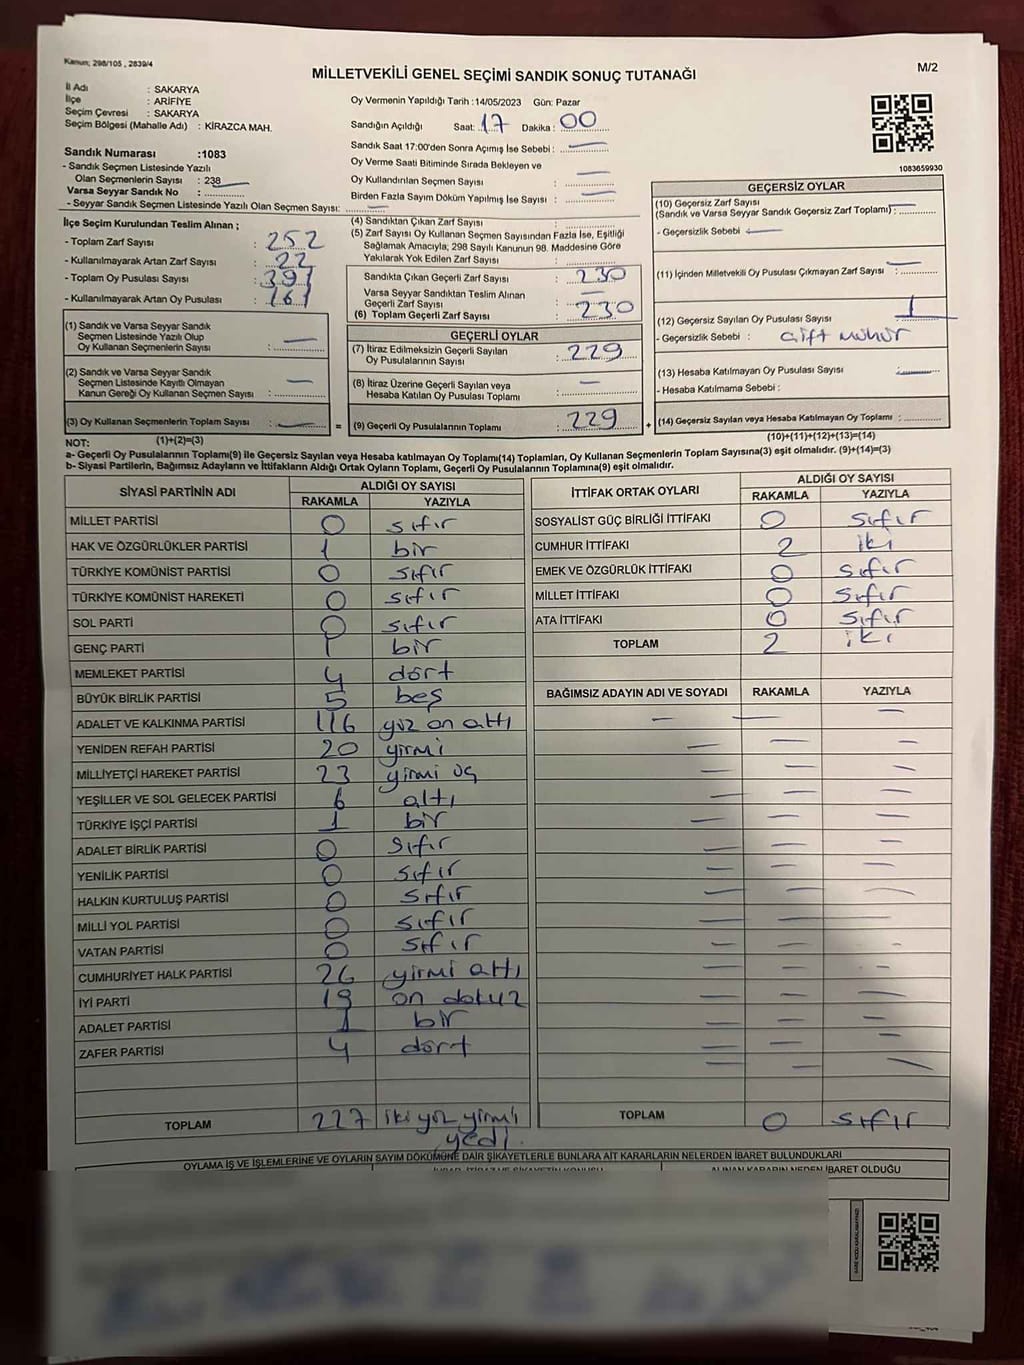 Kanun; 298/105 , 2839/4
MİLLETVEKİLİ GENEL SEÇİMİ SANDIK SONUÇ TUTANAĞI
M/2
İl Adı : SAKARYA
İlçe : ARİFİYE
Seçim Çevresi : SAKARYA
Seçim Bölgesi (Mahalle Adı) : KİRAZCA MAH.
Sandık Numarası :1083
- Sandık Seçmen Listesinde Yazılı
Olan Seçmenlerin Sayısı : 238
Varsa Seyyar Sandık No :
- Seyyar Sandık Seçmen Listesinde Yazılı Olan Seçmen Sayısı:
Oy Vermenin Yapıldığı Tarih :14/05/2023 Gün: Pazar
Sandığın Açıldığı Saat: 17 Dakika : 00
Sandık Saat 17:00'den Sonra Açılmış İse Sebebi : —
Oy Verme Saati Bitiminde Sırada Bekleyen ve
Oy Kullandırılan Seçmen Sayısı : —
Birden Fazla Sayım Döküm Yapılmış İse Sayısı : —
1083659930
İlçe Seçim Kurulundan Teslim Alınan ;
- Toplam Zarf Sayısı : 252
- Kullanılmayarak Artan Zarf Sayısı : 22
- Toplam Oy Pusulası Sayısı : 391
- Kullanılmayarak Artan Oy Pusulası : 161
(1) Sandık ve Varsa Seyyar Sandık
Seçmen Listesinde Yazılı Olup
Oy Kullanan Seçmenlerin Sayısı : —
(2) Sandık ve Varsa Seyyar Sandık
Seçmen Listesinde Kayıtlı Olmayan
Kanun Gereği Oy Kullanan Seçmen Sayısı : —
(3) Oy Kullanan Seçmenlerin Toplam Sayısı : —
(1)+(2)=(3)
(4) Sandıktan Çıkan Zarf Sayısı :
(5) Zarf Sayısı Oy Kullanan Seçmen Sayısından Fazla İse, Eşitliği
Sağlamak Amacıyla; 298 Sayılı Kanunun 98. Maddesine Göre
Yakılarak Yok Edilen Zarf Sayısı :
Sandıkta Çıkan Geçerli Zarf Sayısı : 230
Varsa Seyyar Sandıktan Teslim Alınan
Geçerli Zarf Sayısı : —
(6) Toplam Geçerli Zarf Sayısı : 230
GEÇERLİ OYLAR
(7) İtiraz Edilmeksizin Geçerli Sayılan
Oy Pusulalarının Sayısı : 229
(8) İtiraz Üzerine Geçerli Sayılan veya
Hesaba Katılan Oy Pusulası Toplamı : —
= (9) Geçerli Oy Pusulalarının Toplamı : 229 +
GEÇERSİZ OYLAR
(10) Geçersiz Zarf Sayısı
(Sandık ve Varsa Seyyar Sandık Geçersiz Zarf Toplamı) : —
- Geçersizlik Sebebi : —
(11) İçinden Milletvekili Oy Pusulası Çıkmayan Zarf Sayısı : —
(12) Geçersiz Sayılan Oy Pusulası Sayısı : 1
- Geçersizlik Sebebi : çift mühür
(13) Hesaba Katılmayan Oy Pusulası Sayısı : —
- Hesaba Katılmama Sebebi :
(14) Geçersiz Sayılan veya Hesaba Katılmayan Oy Toplamı :
(10)+(11)+(12)+(13)=(14)
NOT:
a- Geçerli Oy Pusulalarının Toplamı(9) ile Geçersiz Sayılan veya Hesaba katılmayan Oy Toplamı(14) Toplamları, Oy Kullanan Seçmenlerin Toplam Sayısına(3) eşit olmalıdır. (9)+(14)=(3)
b- Siyasi Partilerin, Bağımsız Adayların ve İttifakların Aldığı Ortak Oyların Toplamı, Geçerli Oy Pusulalarının Toplamına(9) eşit olmalıdır.
SİYASİ PARTİNİN ADI ALDIĞI OY SAYISI
RAKAMLA YAZIYLA
MİLLET PARTİSİ 0 sıfır
HAK VE ÖZGÜRLÜKLER PARTİSİ 1 bir
TÜRKİYE KOMÜNİST PARTİSİ 0 sıfır
TÜRKİYE KOMÜNİST HAREKETİ 0 sıfır
SOL PARTİ 0 sıfır
GENÇ PARTİ 1 bir
MEMLEKET PARTİSİ 4 dört
BÜYÜK BİRLİK PARTİSİ 5 beş
ADALET VE KALKINMA PARTİSİ 116 yüz on altı
YENİDEN REFAH PARTİSİ 20 yirmi
MİLLİYETÇİ HAREKET PARTİSİ 23 yirmi üç
YEŞİLLER VE SOL GELECEK PARTİSİ 6 altı
TÜRKİYE İŞÇİ PARTİSİ 1 bir
ADALET BİRLİK PARTİSİ 0 sıfır
YENİLİK PARTİSİ 0 sıfır
HALKIN KURTULUŞ PARTİSİ 0 sıfır
MİLLİ YOL PARTİSİ 0 sıfır
VATAN PARTİSİ 0 sıfır
CUMHURİYET HALK PARTİSİ 26 yirmi altı
İYİ PARTİ 19 on dokuz
ADALET PARTİSİ 1 bir
ZAFER PARTİSİ 4 dört
TOPLAM 227 iki yüz yirmi
yedi.
İTTİFAK ORTAK OYLARI ALDIĞI OY SAYISI
RAKAMLA YAZIYLA
SOSYALİST GÜÇ BİRLİĞİ İTTİFAKI 0 sıfır
CUMHUR İTTİFAKI 2 iki
EMEK VE ÖZGÜRLÜK İTTİFAKI 0 sıfır
MİLLET İTTİFAKI 0 sıfır
ATA İTTİFAKI 0 sıfır
TOPLAM 2 iki
BAĞIMSIZ ADAYIN ADI VE SOYADI RAKAMLA YAZIYLA
TOPLAM 0 sıfır
OYLAMA İŞ VE İŞLEMLERİNE VE OYLARIN SAYIM DÖKÜMÜNE DAİR ŞİKAYETLERLE BUNLARA AİT KARARLARIN NELERDEN İBARET BULUNDUKLARI
ALINAN KARARIN NEDEN İBARET OLDUĞU